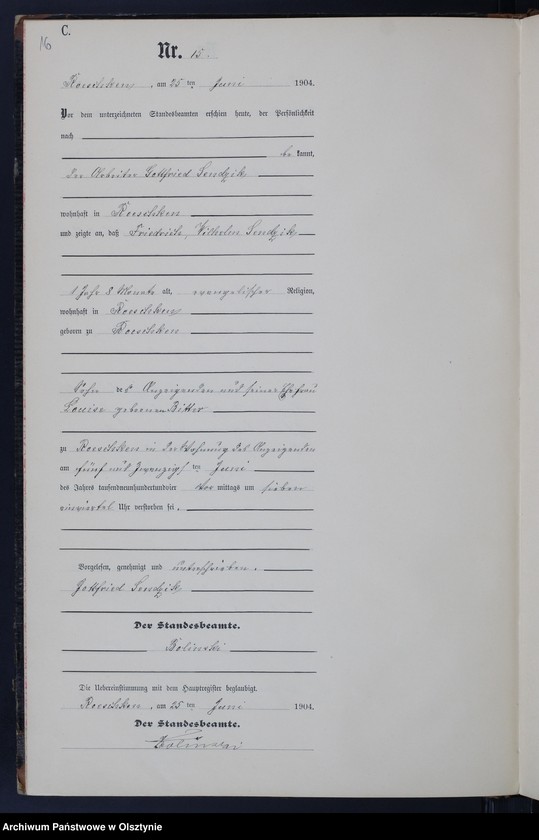 C.
16
Nr. 15
Roeschken, am 25 ten Juni 1904.
Vor dem unterzeichneten Standesbeamten erschien heute, der Persönlichkeit
nach
be kannt,
der Arbeiter Gottfried Sendzik
wohnhaft in Roeschken
und zeigte an, daß Friedrich, Wilhelm Sendzik
1 Jahr 8 Monate alt, evangelischer Religion,
wohnhaft in Roeschken
geboren zu Roeschken
Sohn des Anzeigenden und seiner Ehefrau
Louise geborenen
zu Roeschken in der Wohnung des Anzeigenden
am fünf und zwanzigsten Juni
des Jahres tausendneunhundertundvier Vor mittags um sieben
einviertel Uhr verstorben sei.
Vorgelesen, genehmigt und unterschrieben.
Gottfried Sendzik
Der Standesbeamte.
Bolinski
Die Uebereinstimmung mit dem Hauptregister beglaubigt.
Roeschken, am 25 ten Juni 1904.
Der Standesbeamte.
Bolinski
Archiwum Państwowe w Olsztynie